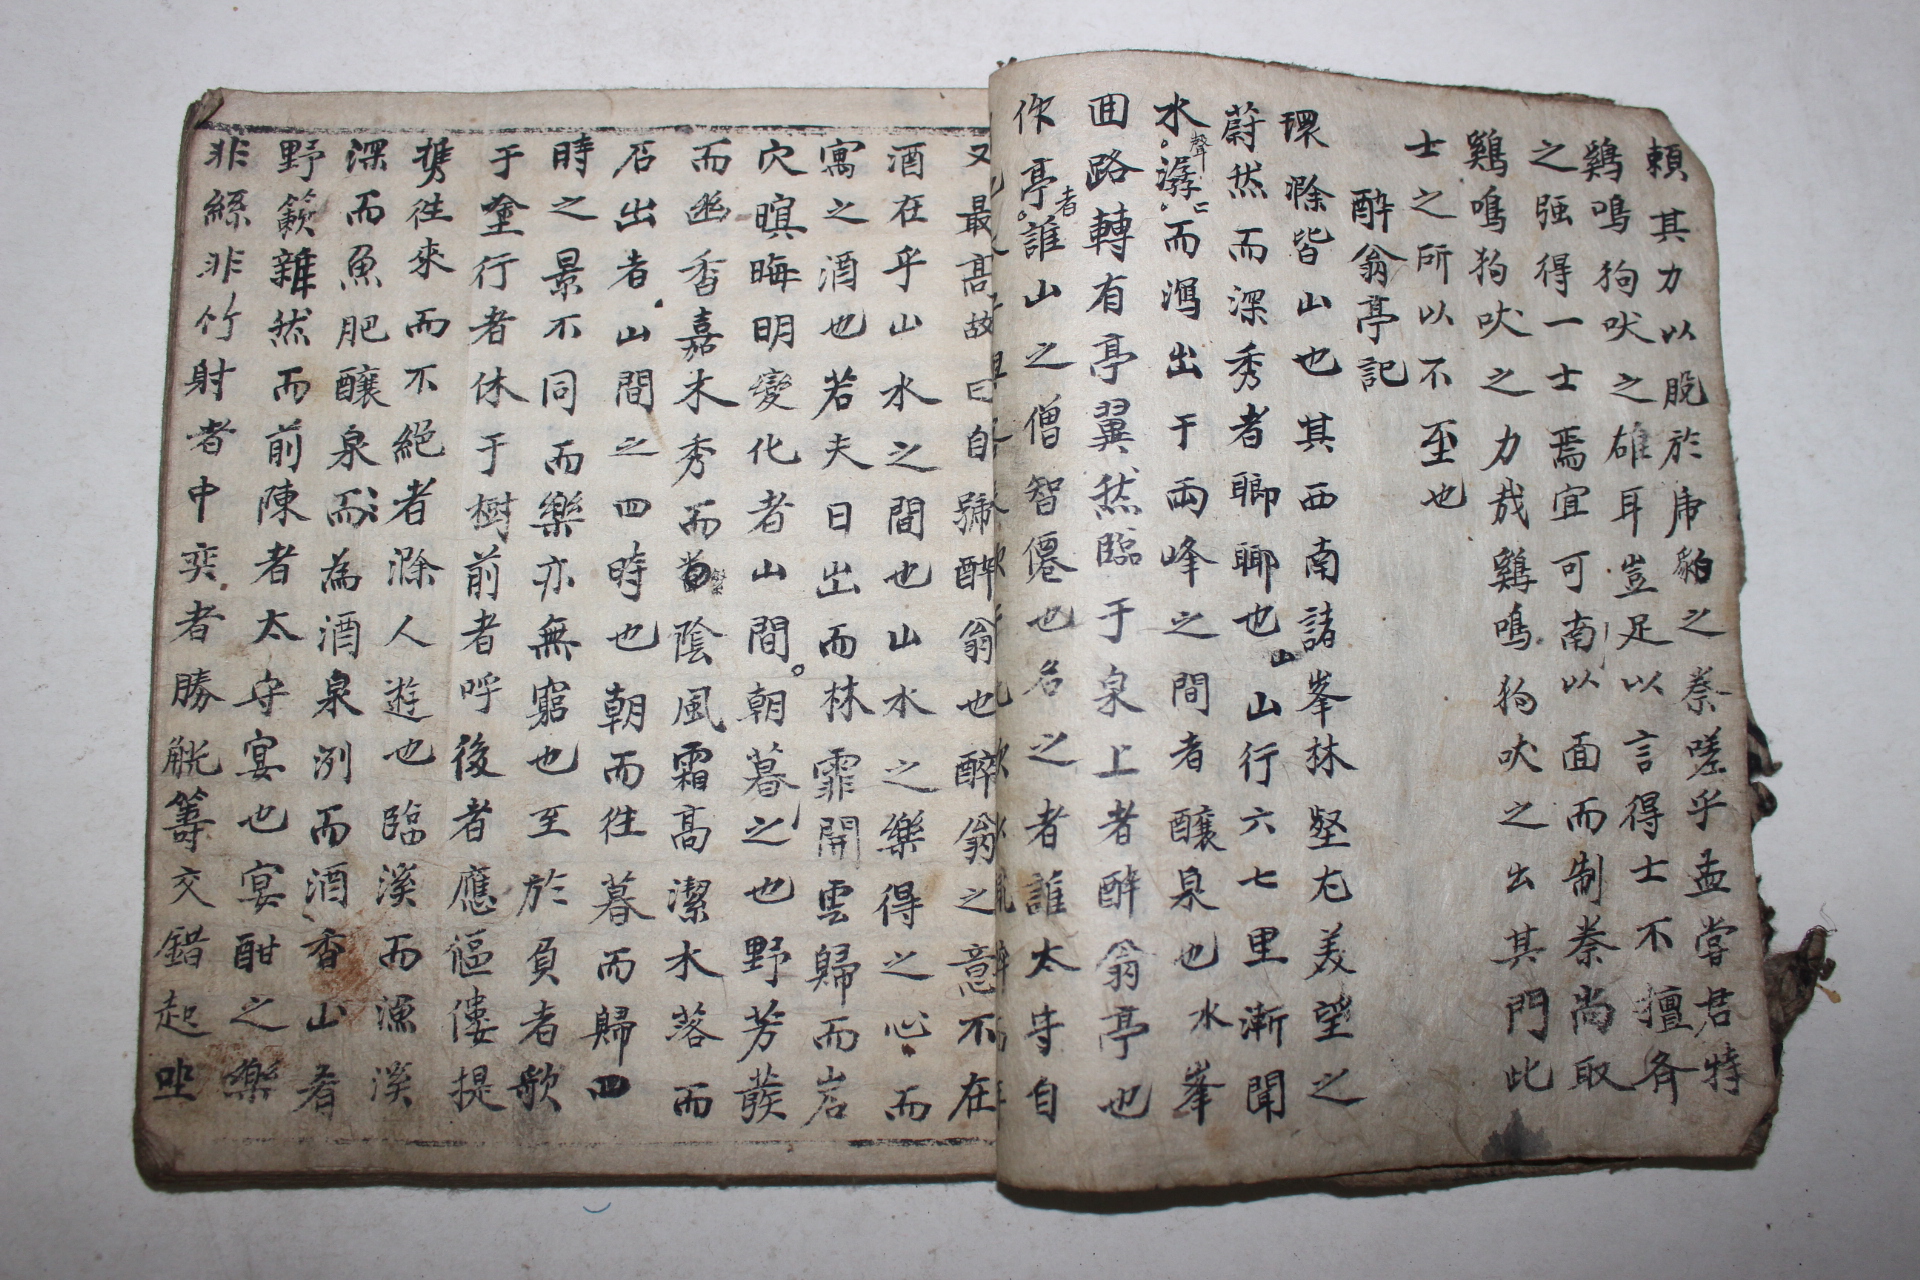 賴其力以脫於虎豹之秦嗟乎孟嘗君特
鷄鳴狗吠之雄耳豈足以言得士不擅齊
之强得一士焉宜可南以面而制秦尚取
鷄鳴狗吠之力哉鷄鳴狗吠之出其門此
士之所以不至也
醉翁亭記
環滁皆山也其西南諸峯林壑尤美望之
蔚然而深秀者瑯瑯也山行六七里漸聞
水聲潺〻而瀉出于兩峰之間者釀泉也水峯
回路轉有亭翼然臨于泉上者醉翁亭也
作亭者誰山之僧智僊也名之者誰太守自
又最高故曰自號醉翁也醉翁之意不在
酒在乎山水之間也山水之樂得之心而
寓之酒也若夫日出而林霏開雲歸而岩
穴暝晦明變化者山間朝暮之也野芳發
而幽香嘉木秀而陰風霜高潔水落而
石出者山間之四時也朝而往暮而歸四
時之景不同而樂亦無窮也至於負者歌
于塗行者休于樹前者呼後者應傴僂提
携往來而不絕者滁人遊也臨溪而漁溪
深而魚肥釀泉而為酒泉洌而酒香山肴
野簌雜然而前陳者太守宴也宴酣之樂
非絲非竹射者中奕者勝觥籌交錯起坐